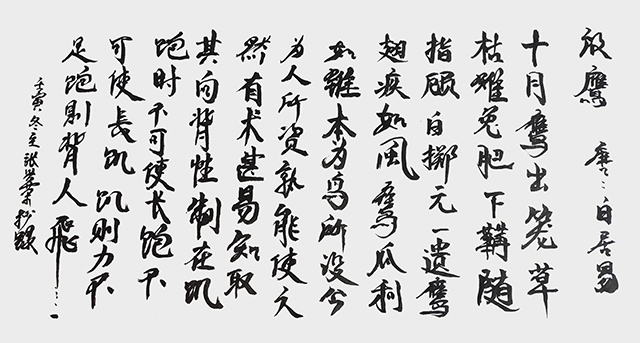 放鹰 唐：白居易
十月鹰出笼草
枯雉兔肥下鞲随
指顾百掷无一遗鹰
翅疾如風鹰爪利
如锥本为鸟所设今
为人所资孰能使之
然有术甚易知取
其向背性制在饥
饱时不可使长饱不
可使長饥饥则力不
足饱則背人飛……
壬寅冬至张